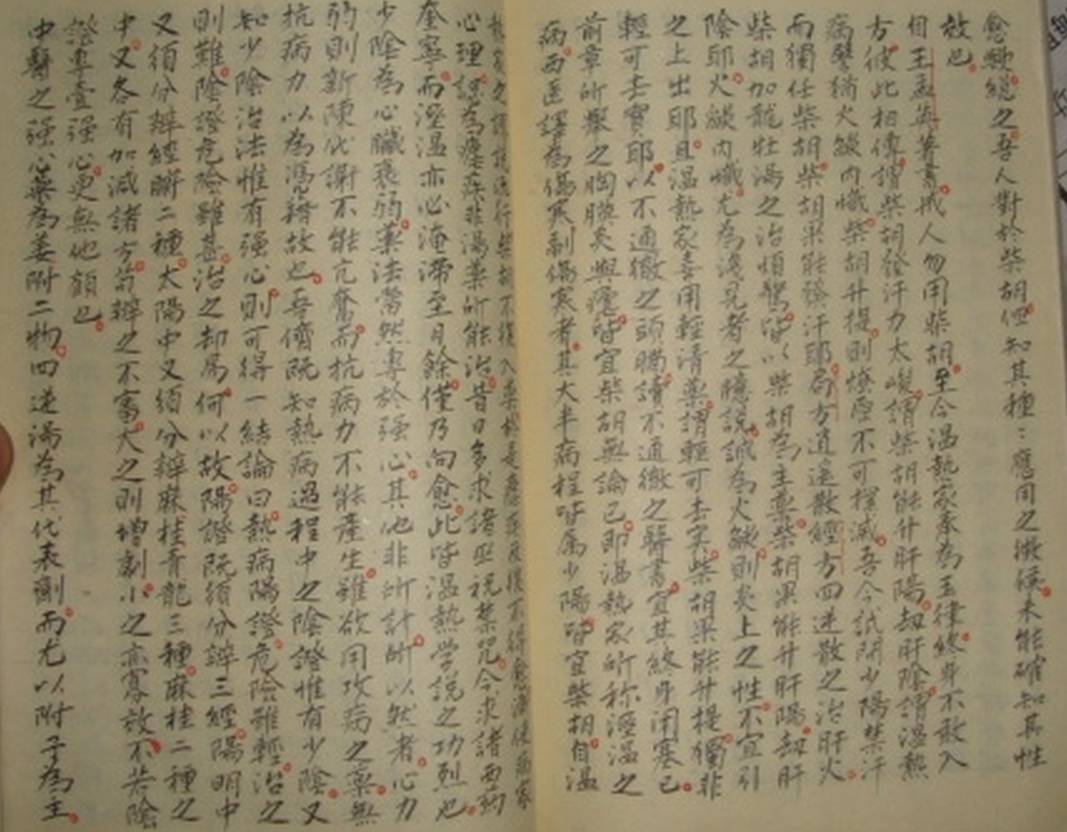 愈輙總之吾人對於柴胡但知其種：應用之徵候未能確知其性
效也
自王孟英著書戒人勿用柴胡至今温熱家奉為玉律終身不敢入
方彼此相傳謂柴胡發汗力太峻謂柴胡能升肝陽劫肝陰謂温熱
病譬猶火燄內熾柴胡升提則燎原不可撲滅吾今試問少陽禁汗
而獨任柴胡柴胡果能發汗耶局方逍遥散經方四逆散之治肝火
柴胡加龍牡湯之治煩驚皆以柴胡為主藥柴胡果能升肝陽刼肝
陰耶火燄內熾尤為淺見者之臆說誠為火燄則炎上之性不宜引
之上出耶且温熱家喜用輕清藥謂輕可去实柴胡果能升提獨非
輕可去實耶以不通徹之頭腦讀不通徹之醫書宜其終身閉塞已
前章所舉之胸膜炎與瘧皆宜柴胡無論已即温熱家所称溼温之
病西医譯為傷寒副傷寒者其大半病程皆属少陽皆宜柴胡自温
心理說為瘧疾非湯藥所能治昔日多求諸巫祝禁咒今求諸西药
奎寧而溼温亦必淹滯至月餘僅乃向愈此皆温熱学說之功烈也
少陰為心臟衰弱藥法當然專於強心其他非所計所以然者心力
弱則新陳代謝不能亢奮而抗病力不能產生雖欲用攻病之藥無
抗病力以為憑藉故也吾儕既知熱病過程中之陰證惟有少陰又
知少陰治法惟有强心則可得一結論曰熱病陽證危險雖輕治之
則難陰證危險雖甚治之却易何以故陽證既須分辨三經陽明中
又須分辨經腑二種太陽中又須分辨麻桂青龍三種麻桂二種之
中又各有加減諸方苟辨之不審大之則增劇小之亦寡效不若陰
證專壹强心更無他顧也
中醫之强心藥為姜附二物四逆湯為其代表劑而尤以附子為主